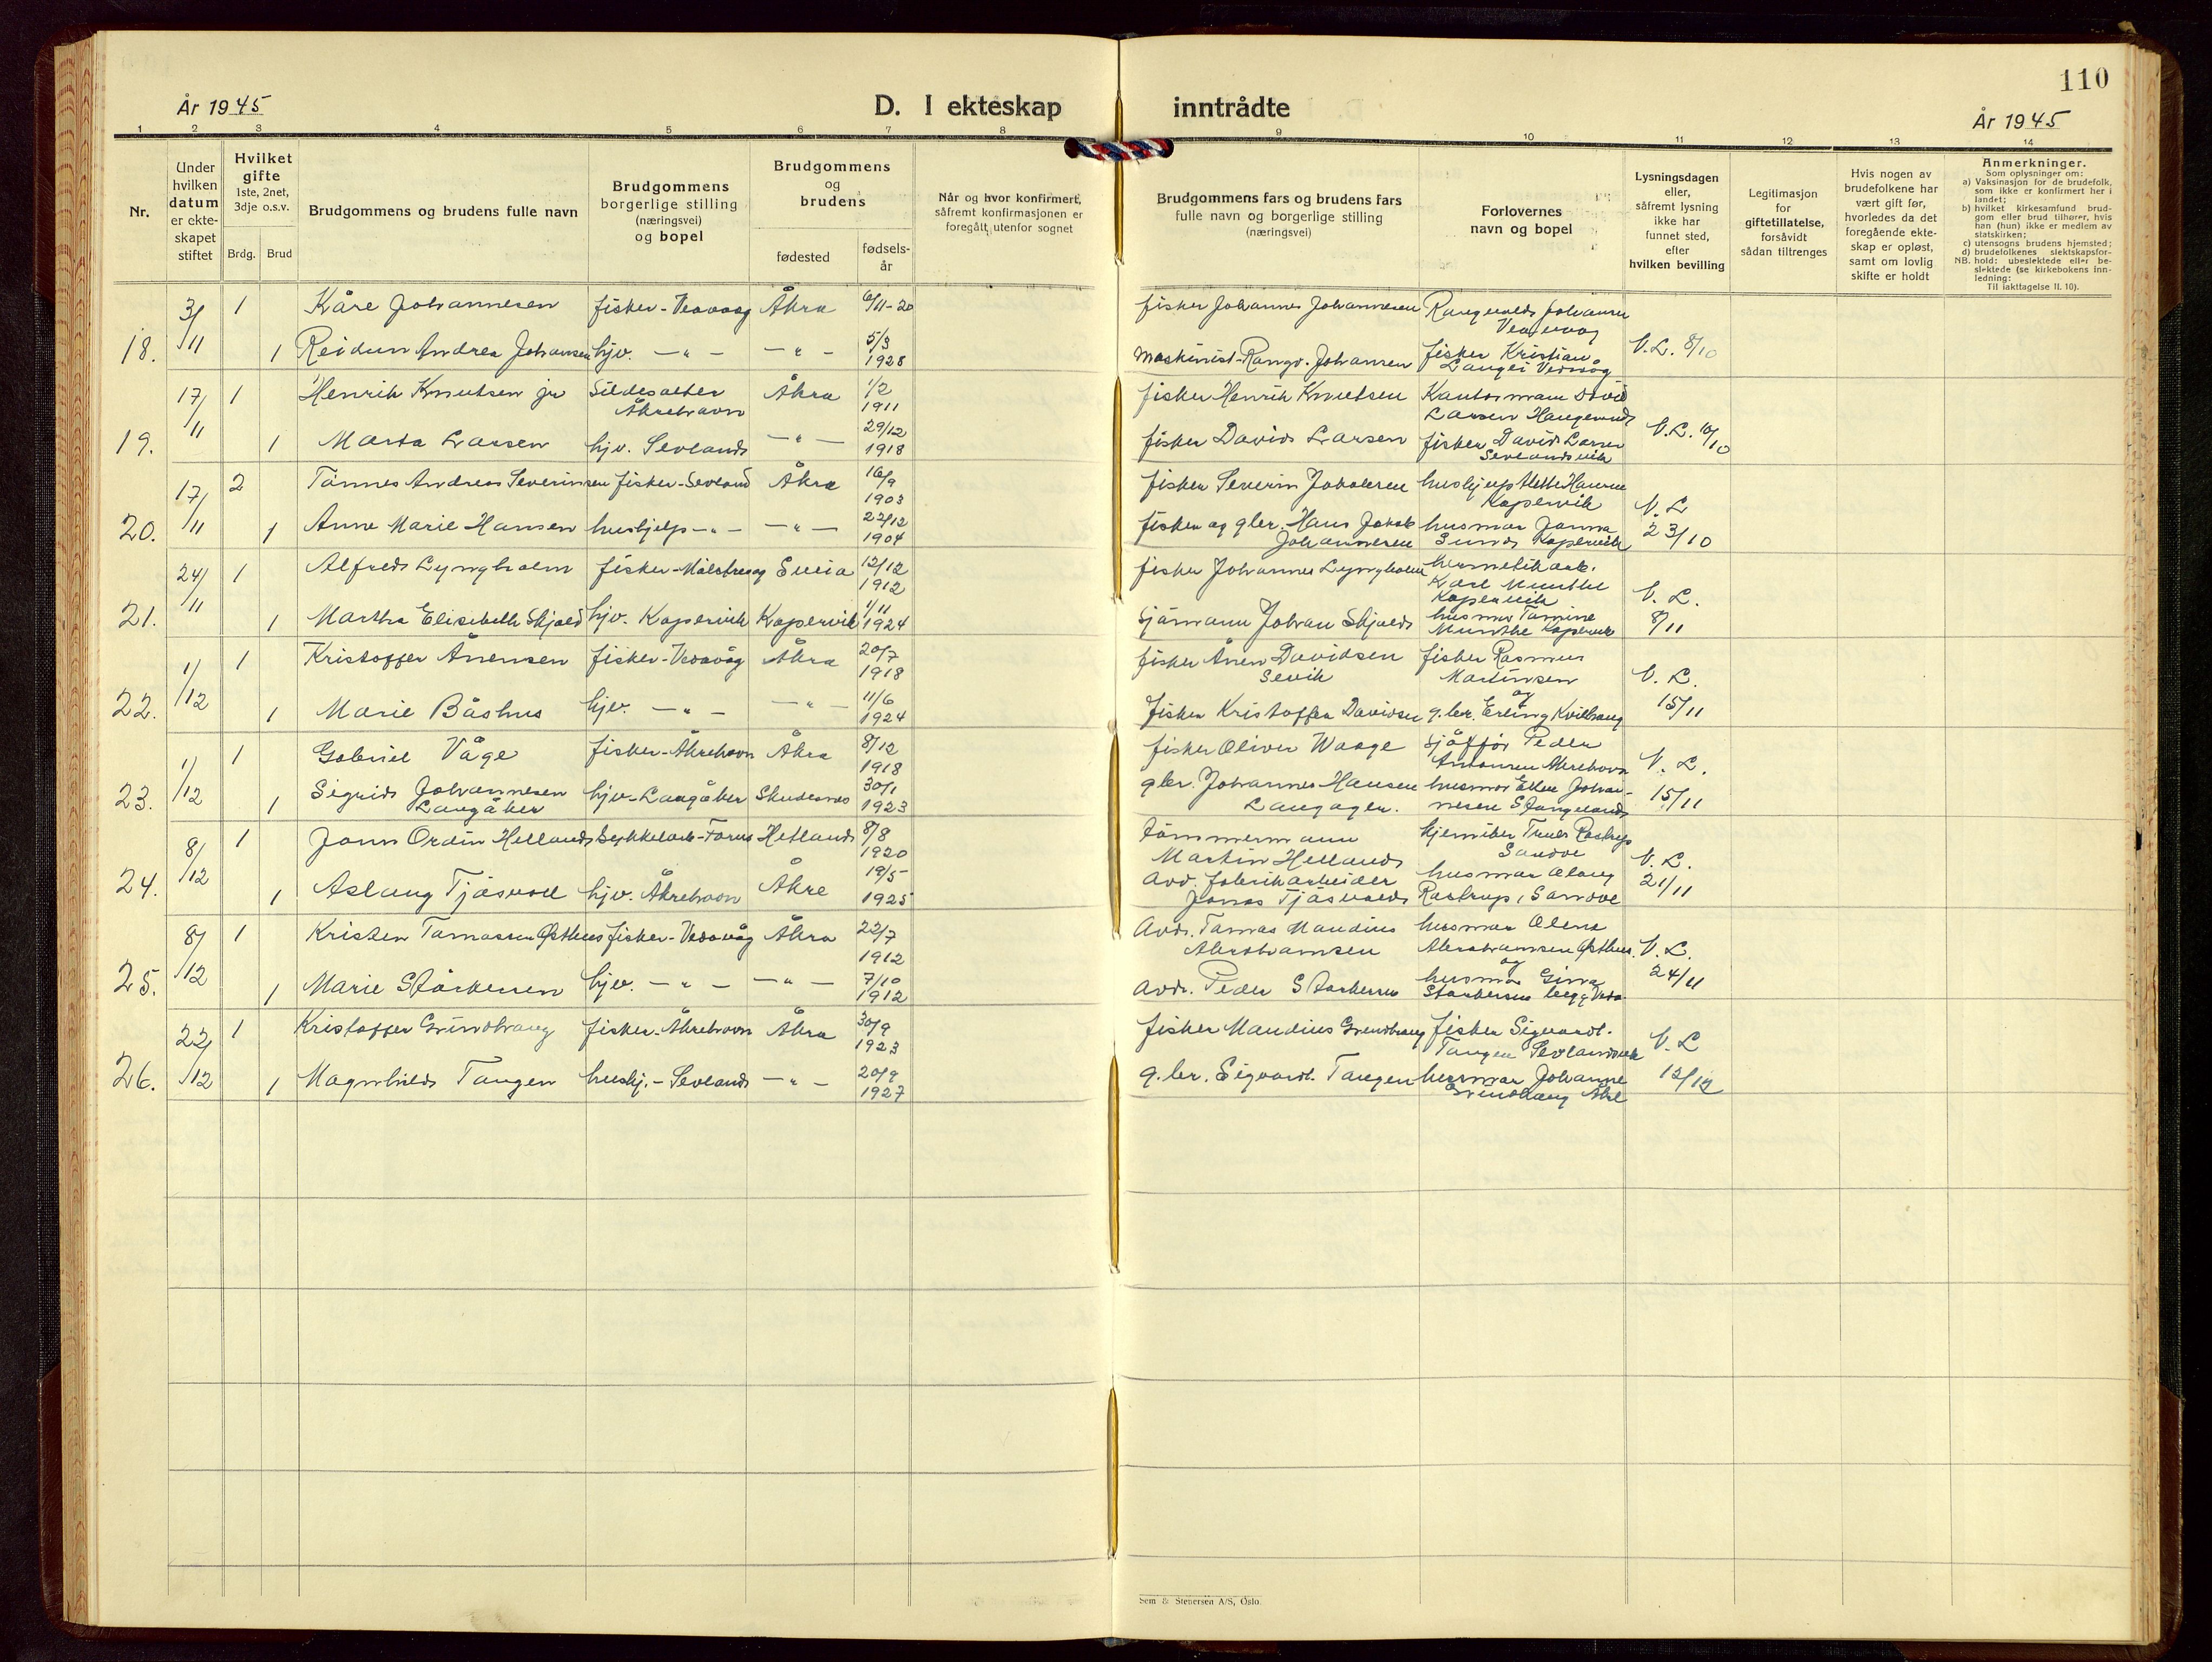 110
År 1945
D. I ekteskap inntrådte
År 1945
1 2 3 4 5 6 7 8 9 10 11 12 13 14
Nr.
Under
hvilken
datum
er ekte-
skapet
stiftet
Hvilket
gifte
1ste, 2net,
3dje o.s.v.
Brdg. Brud
Brudgommens og brudens fulle navn
Brudgommens
borgerlige stilling
(næringsvei)
og bopel
Brudgommens
og
brudens
fødested
fødsels-
år
Når og hvor konfirmert,
såfremt konfirmasjonen er
foregått utenfor sognet
Brudgommens fars og brudens fars
fulle navn og borgerlige stilling
(næringsvei)
Forlovernes
navn og bopel
Lysningsdagen
eller,
såfremt lysning
ikke har
funnet sted,
efter
hvilken bevilling
Legitimasjon
for
giftetillatelse,
forsåvidt
sådan tiltrenges
Hvis nogen av
brudefolkene har
vært gift før,
hvorledes da det
foregående ekte-
skap er opløst,
samt om lovlig
skifte er holdt
Anmerkninger.
Som oplysninger om:
a) Vaksinasjon for de brudefolk,
som ikke er konfirmert her i
landet;
b) hvilket kirkesamfund brud-
gom eller brud tilhører, hvis
han (hun) ikke er medlem av
statskirken;
c) utensogns brudens hjemsted;
d) brudefolkenes slektskapsfor-
NB. hold: ubeslektede eller be-
slektede (se kirkebokens inn-
ledning:
Til iakttagelse II. 10).
18. 3/11 1 Kåre Johannesen fisker - Veavaag Åkra 6/11-20 fisker Johannes Johannesen
1 Reidun Andrea Johansen hjv. — " — — " — 5/3 1928 maskinist - Rangv. Johansen fisker Kristian V.L. 8/10
19. 17/11 1 Henrik Knutsen jr Sildesalter Åkrehavn Åkra 1/2 1911 fisker Henrik Knutsen Kantormann David Larsen
1 Marta Larsen hjv. Sevland — " — 29/12 1918 fisker David Larsen fisker David Larsen Sevlandsvik V.L. 10/10
20. 17/11 2 Tønnes Andreas Severinsen fisker - Sevland Åkra 16/9 1903 fisker Severin Jakobsen Kopervik
1 Anne Marie Hansen hushjelp — " — — " — 22/12 1904 fisker og gbr. Hans Jakob Johannesen husmor Sund Kopervik V.L 23/10
21. 24/11 1 Alfred Lyngholm fisker 12/12 1912 fisker Johannes Lyngholm Karl Munthe Kopervik
1 Martha Elisabeth Skjold hjv. Kopervik Kopervik 1/11 1924 sjømann Johan Skjold husmor Tomine Munthe Kopervik V.L. 8/11
22. 1/12 1 Kristoffer Ånensen fisker - Vedavåg Åkra 20/7 1918 fisker Ånen Davidsen Sevik fisker Rasmus Martinsen
1 Marie Båshus hjv. — " — — " — 11/6 1924 fisker Kristoffer Davidsen og g.br. Erling Kvilhaug V.L. 15/11
23. 1/12 1 Gabriel Våge fisker - Åkrehavn Åkra 8/12 1918 fisker Oliver Waage sjåffør Peder Antonsen Åkrehavn
1 Sigrid Johannesen Langåker hjv - Langåker Skudesnes 30/1 1923 gbr. Johannes Hansen Langåger. husmor Ellen Johannesen Stangeland V.L. 15/11
24. 8/12 1 Jonn Ordin Helland - Forus Hetland 8/8 1920 tømmermann Martin Helland Sandve
1 Aslaug Tjøsvoll hjv. Åkrehavn Åkre 19/5 1925 avd. fabrikarbeider Jonas Tjøsvold husmor Rastrup, Sandve V.L. 21/11
25. 8/12 1 Kristen Tomassen Østhus fisker - Vedavåg Åkra 22/7 1912 Avd. Tomas Mandius Abrahamsen husmor Olena Abrahamsen Østhus
1 Marie Størkersen hjv. — " — — " — 7/10 1912 avd. Peder Størkersen og husmor Gina Størkersen V.L. 24/11
26. 22/12 1 Kristoffer Grindhaug fisker - Åkrehavn Åkra 30/9 1923 fisker Mandius Grindhaug fisker Sigvardt Tangen Sevlandsvik
1 Magnhild Tangen hushj. - Sevland — " — 20/9 1927 g.br. Sigvardt. Tangen husmor Johanne Grindhaug V.L 12/12
Sem & Stenersen A/S, Oslo.